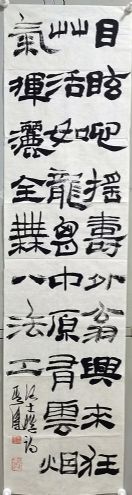 目眩心搖壽外翁興来狂
艸活如龍胷中原有雲烟
氣揮灑全無八法工